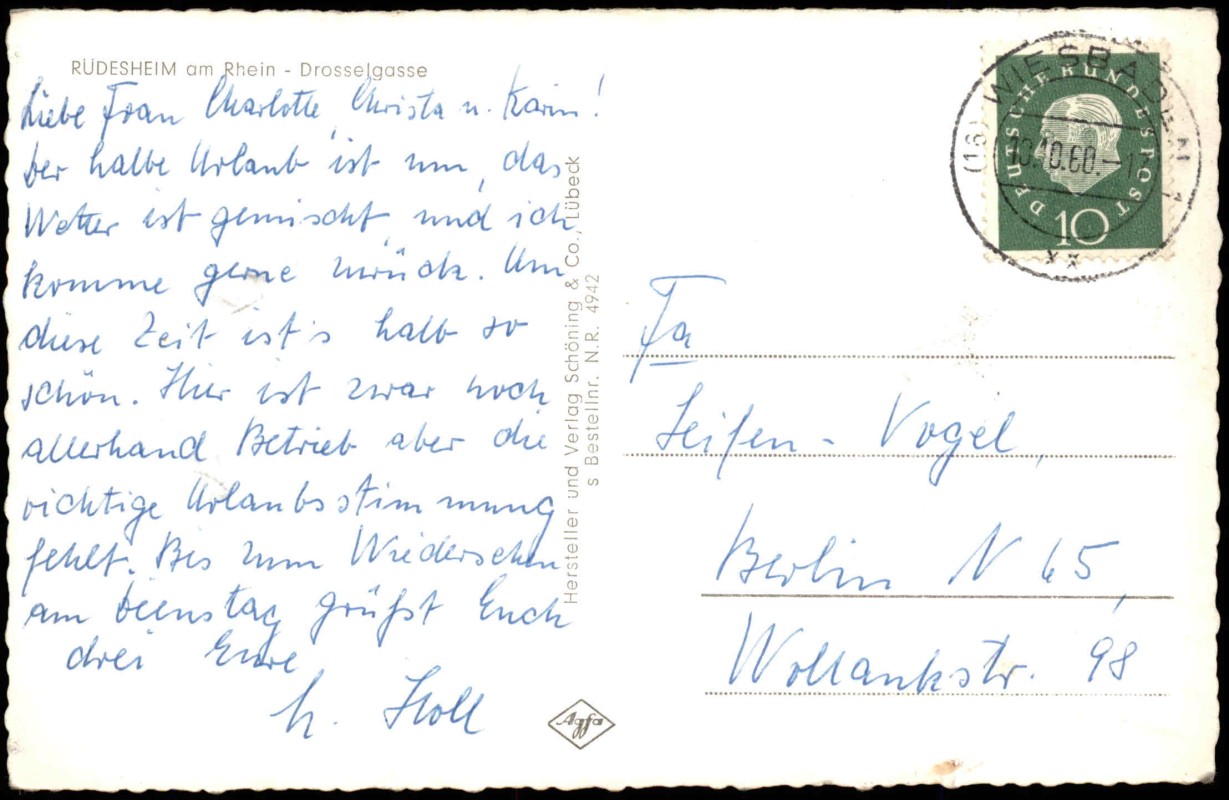 RÜDESHEIM am Rhein - Drosselgasse
Liebe Frau Charlotte, Christa u. Karin!
Der halbe Urlaub ist um, das
Wetter ist gemischt und ich
komme gerne zurück. Um
diese Zeit ist's halb so
schön. Hier ist zwar noch
allerhand Betrieb aber die
richtige Urlaubsstimmung
fehlt. Bis zum Wiedersehen
am Dienstag grüßt Euch
drei Eure
h. Holl
Hersteller und Verlag Schöning & Co., Lübeck
s Bestellnr. N.R. 4942
Agfa
(16) WIESBADEN 1
10.10.60.-17
xx
DEUTSCHE BUNDESPOST
10
Fa
Seifen - Vogel,
Berlin N 65,
Wollankstr. 98